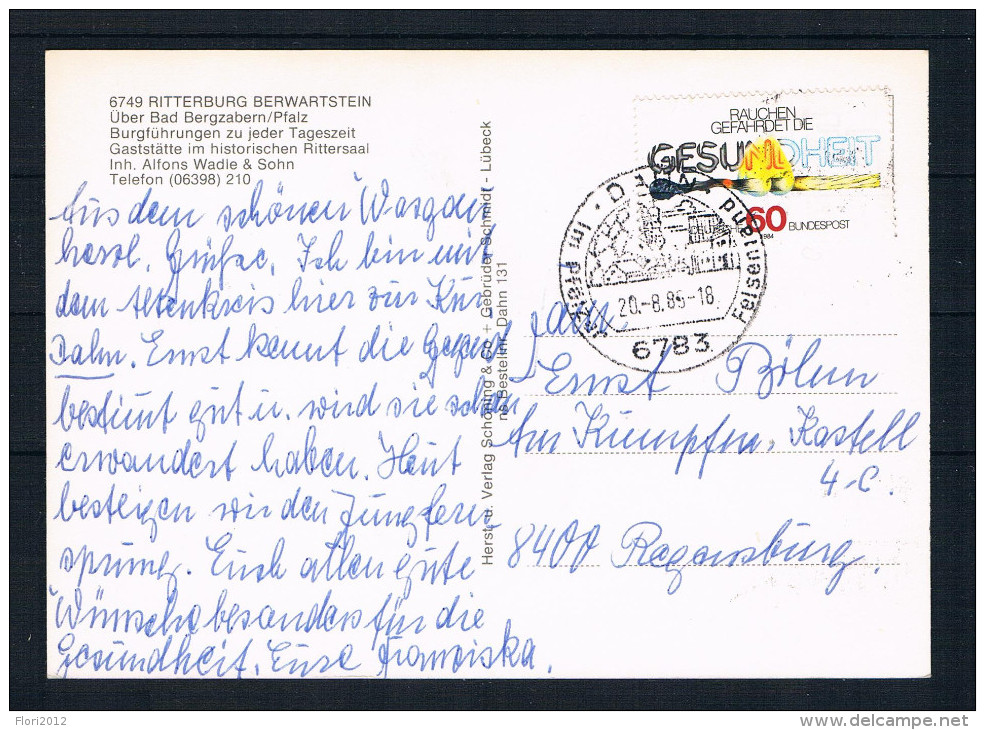 6749 RITTERBURG BERWARTSTEIN
Über Bad Bergzabern/Pfalz
Burgführungen zu jeder Tageszeit
Gaststätte im historischen Rittersaal
Inh. Alfons Wadle & Sohn
Telefon (06398) 210
Aus dem schönen Wasgau
herzl. Grüße. Ich bin mit
dem Altenkreis hier zur Kur
Dahn. Ernst kennt die Gegend
bestimt gut u. wird sie schon
erwandert haben. Heut
besteigen wir den Jungfern
sprung. Euch allen gute
Wünsche besonders für die
Gesundheit. Eure Franziska.
Herst. u. Verlag Schöning & Co + Gebrüder Schmidt - Lübeck
Bestellnr. Dahn 131
RAUCHEN
GEFÄHRDET DIE
GESUNDHEIT
60
BUNDESPOST
1984
20.-8.86-18
6783
Ernst
Am Kumpfm. Kastell
4-c.
8400 Regensburg.
Flori2012
delcampe.net